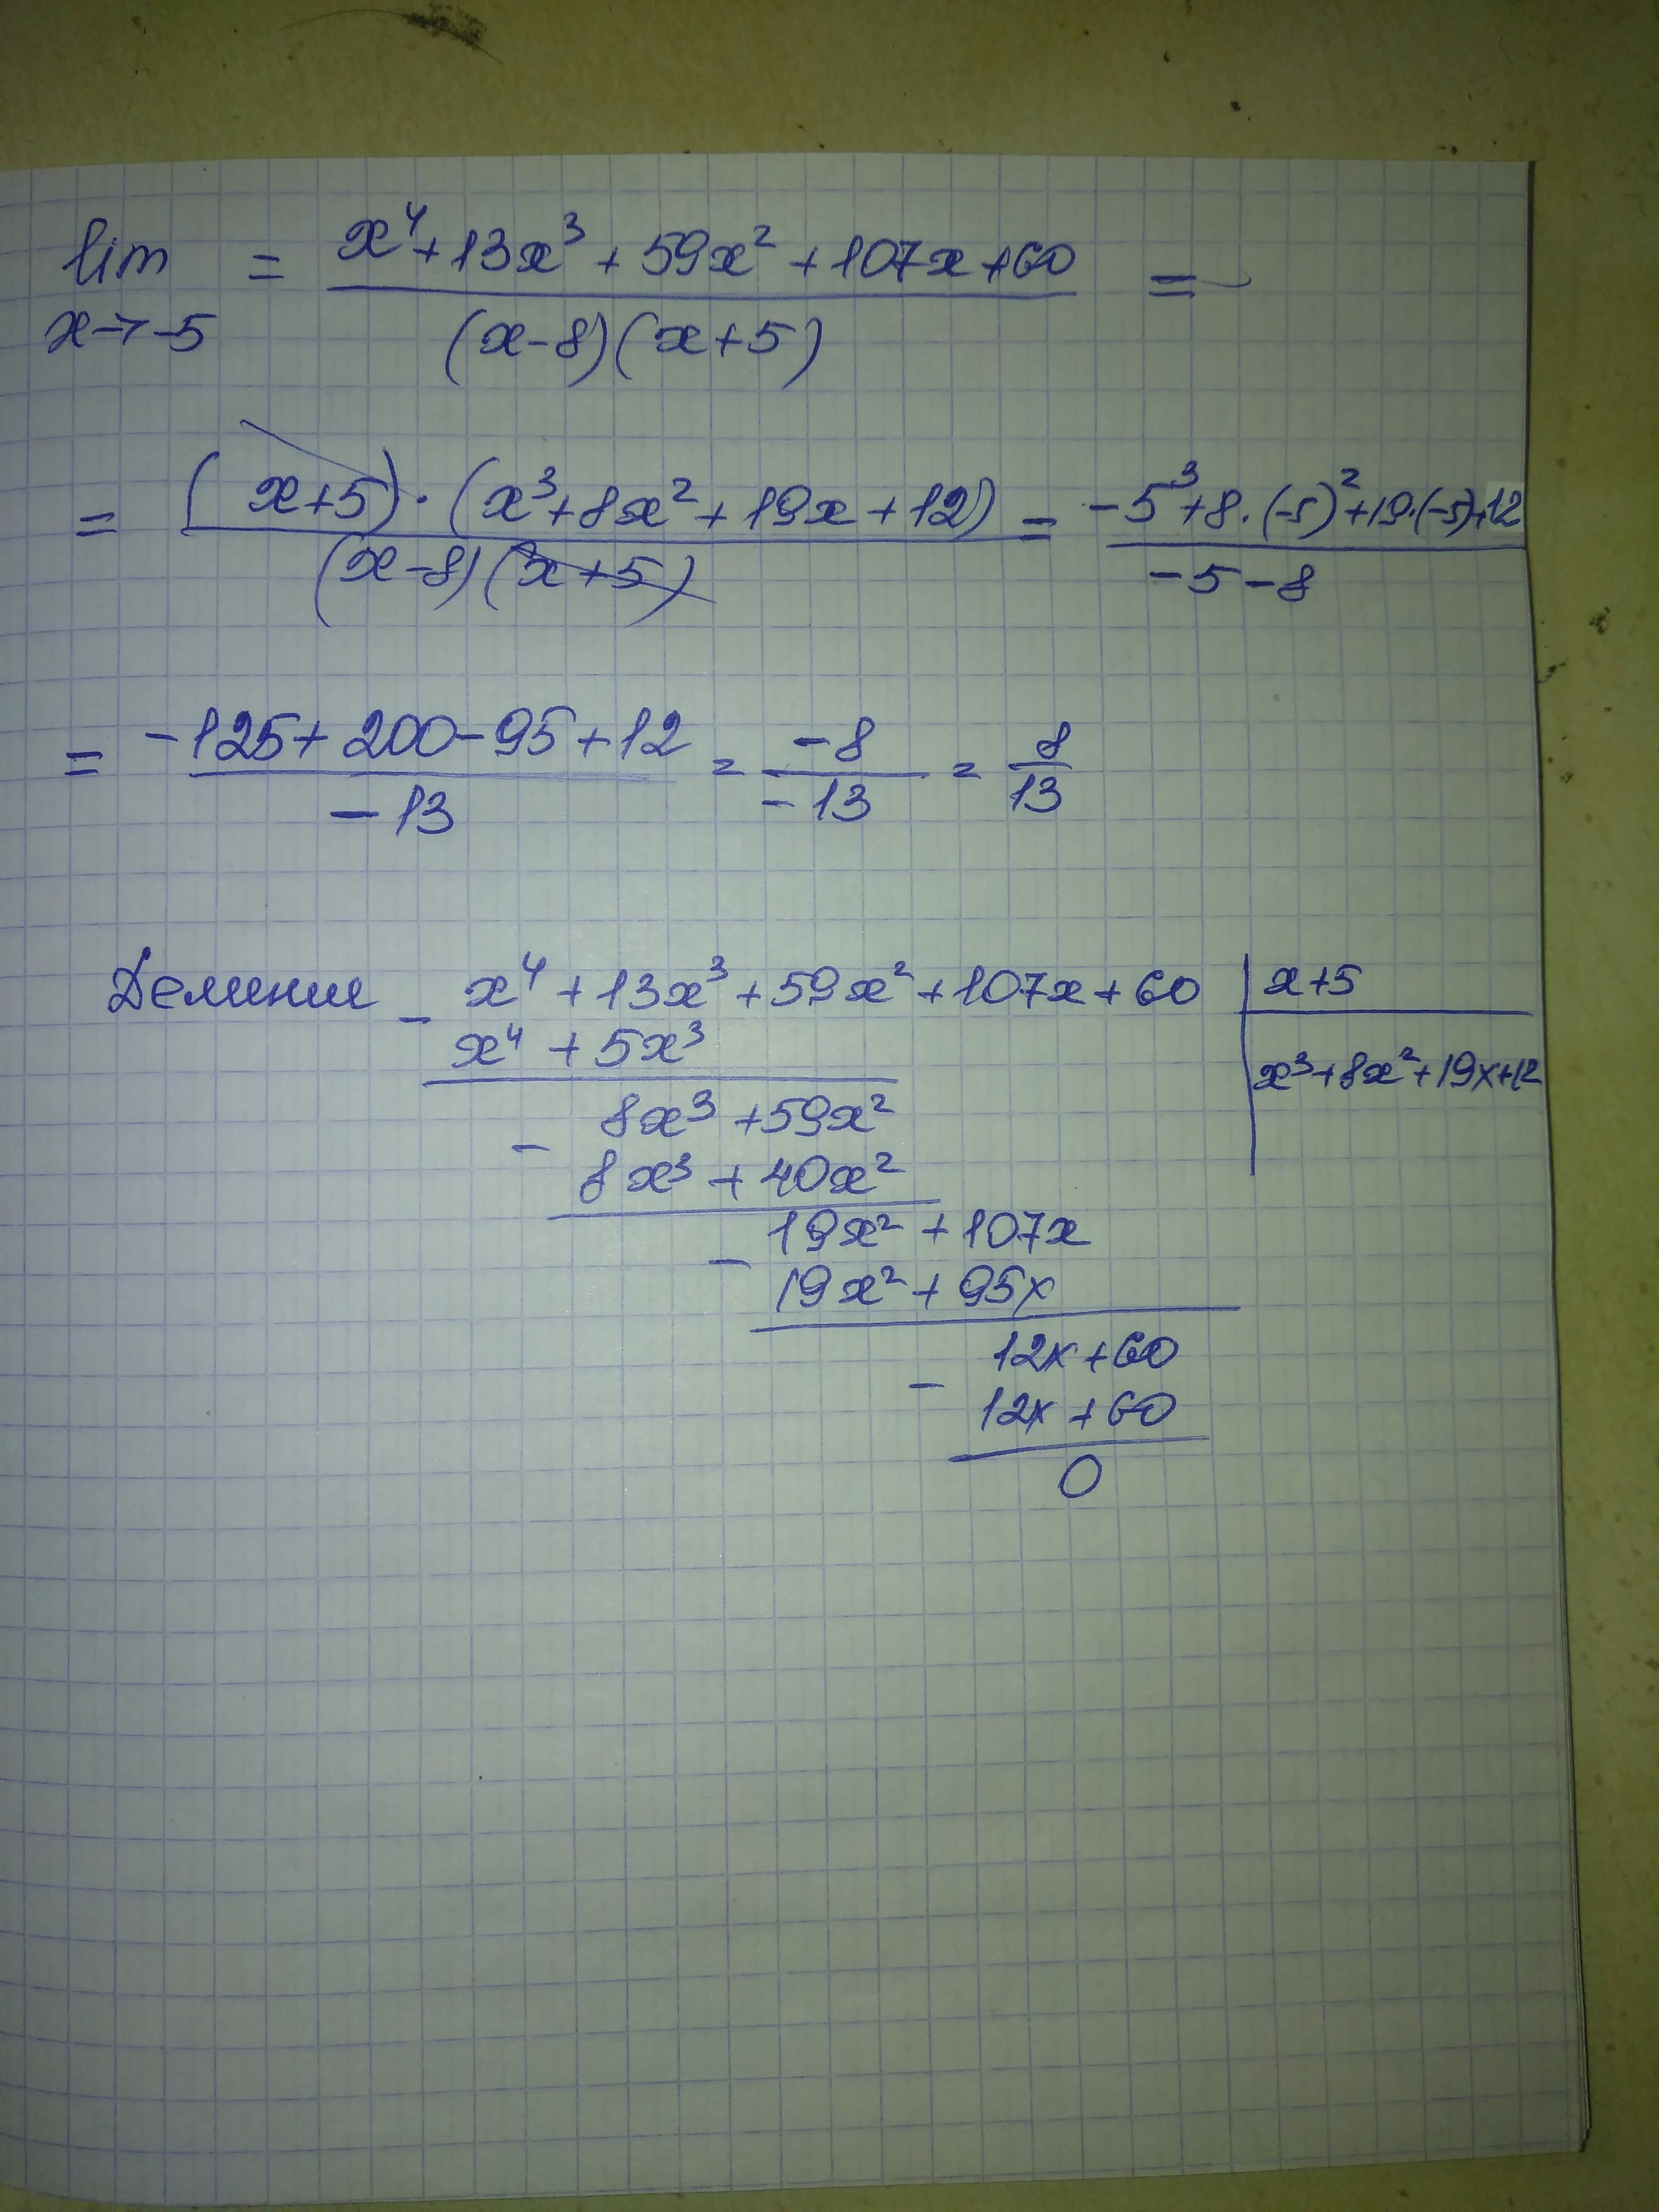 lim = x⁴+13x³+59x²+107x+60 =
x→-5 (x-8)(x+5)
= (x+5)·(x³+8x²+19x+12) = -5³+8·(-5)²+19·(-5)+12
(x-8)(x+5) -5-8
= -125+200-95+12 = -8 = 8
-13 -13 13
Деление - x⁴+13x³+59x²+107x+60 | x+5
x⁴+5x³
x³+8x²+19x+12
8x³+59x²
-
8x³+40x²
- 19x²+107x
19x²+95x
12x+60
-
12x+60
0